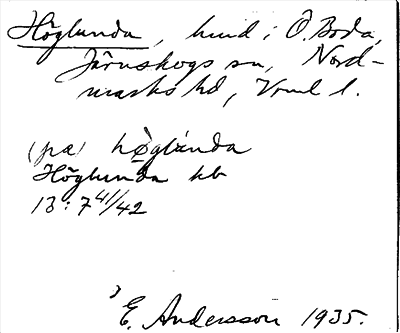 Höglunda, hmd i Ö. Boda,
Järnskogs sn, Nord-
marks hd, Vrml l.
(pa) høglúnda
Höglunda hb
13:7 41/42
E. Andersson 1935.